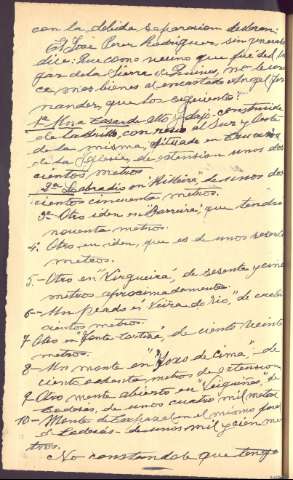 con la debida separacion declaran:
El José Perez Rodriguez, sin generales
dice: Que como vecino que fué del lu-
gar de la Sierra de Quines, no le cono-
ce mas bienes al encartado Angel Fer-
nandez, que los siguientes:
1º Una Casa de alto y bajo, construida
de ladrillo, con resio al Sur y Oeste
de la misma, situada en
de la Iglesia, de extension unos dos
cientos metros.
2º Labradio en de unos dos
cientos cincuenta metros.
3º- Otro iden en "Barreira", que tendrá
noventa metros.
4. Otro en iden, que es de unos sesenta
metros.
5.- Otro en "Virgueira", de sesenta y cinco
metros aproximadamente.
6.- Un prado en "Veira do Rio", de
cientos metros.
7. Otro en "Fonte de ciento veinte
metros.
8.- Un monte en de Cima", - de
ciento ochenta metros de extension
9.- Otro monte abierto en de
de unos cuatro mil metros
10.- Monte de en el mismo
de unos mil y cien me-
tros.
No constandole que tenga